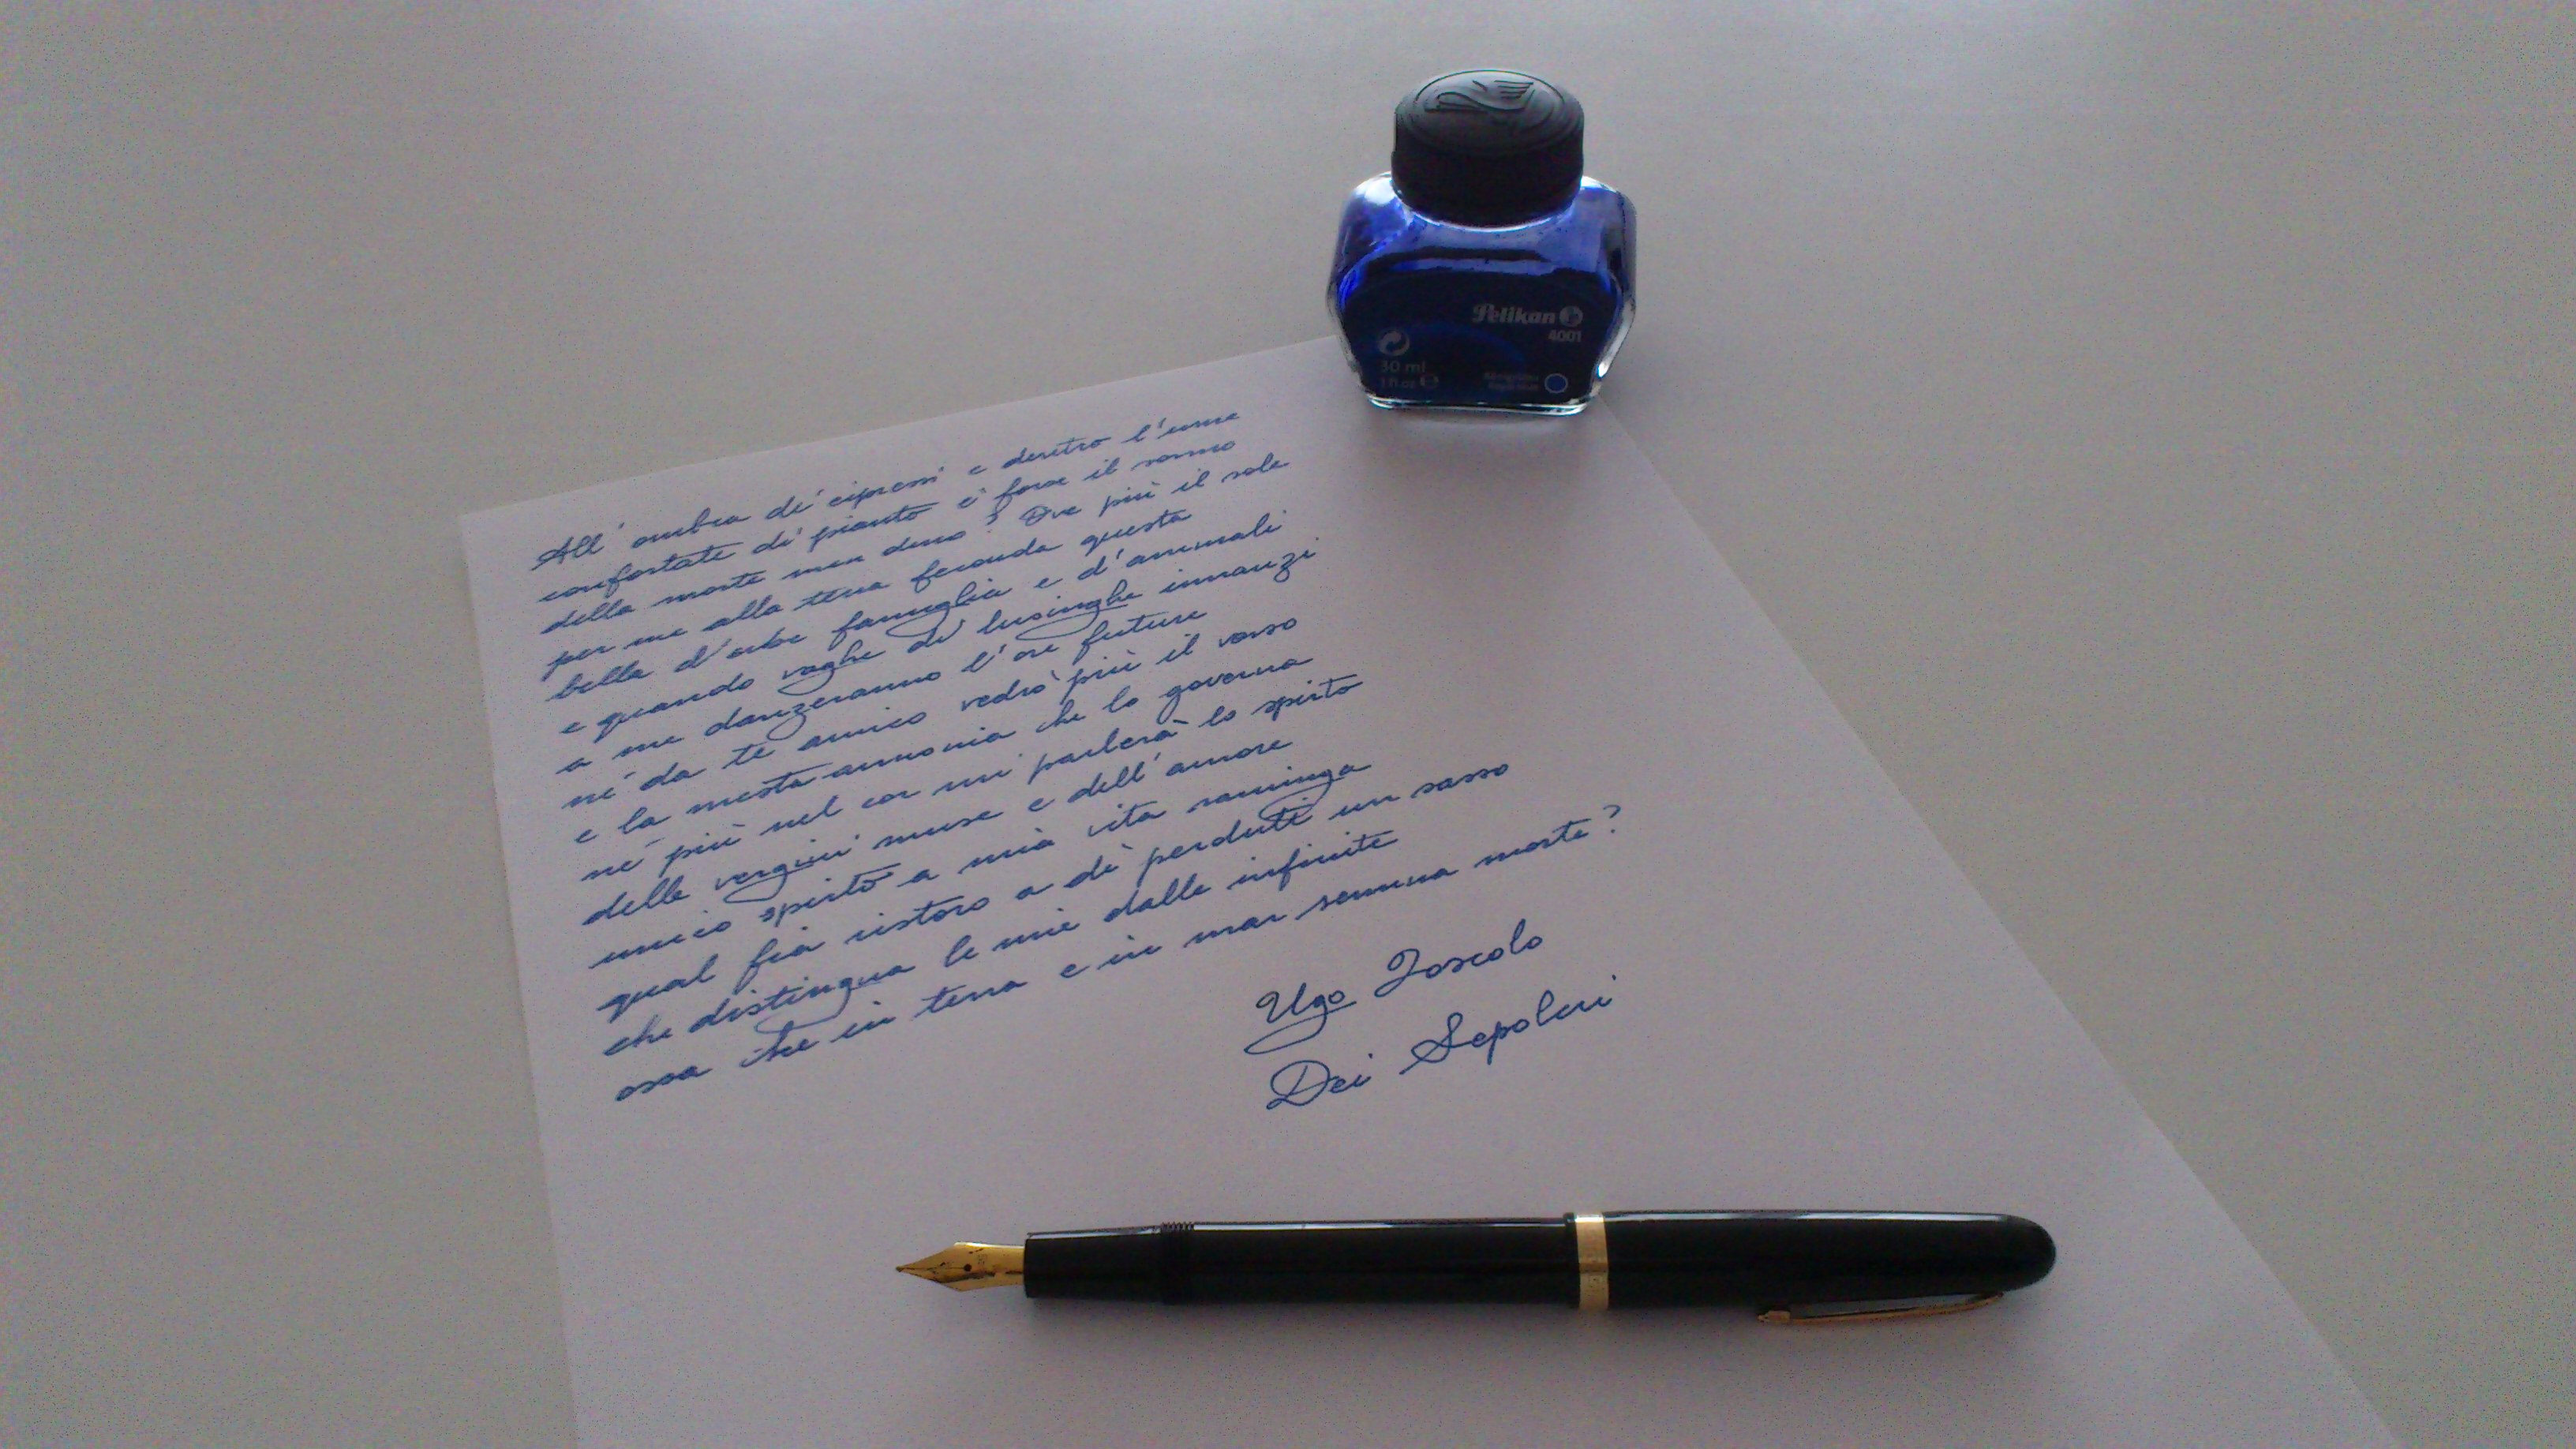 Pelikan
4001
30 ml
1 fl oz
All' ombra de' cipressi e dentro l'urne
confortate di pianto è forse il sonno
della morte men duro? Ove più il sole
per me alla terra feconda questa
bella d'erbe famiglia e d'animali
e quando vaghe di lusinghe innanzi
a me danzeranno l'ore future
né da te amico vedrò più il verso
e la mesta armonia che lo governa
né più nel cor mi parlerà lo spirto
delle vergini muse e dell'amore
unico spirto a mia vita raminga
qual fia ristoro a dì perduti un sasso
che distingua le mie dalle infinite
ossa che in terra e in mar semina morte?
Ugo Foscolo
Dei Sepolcri